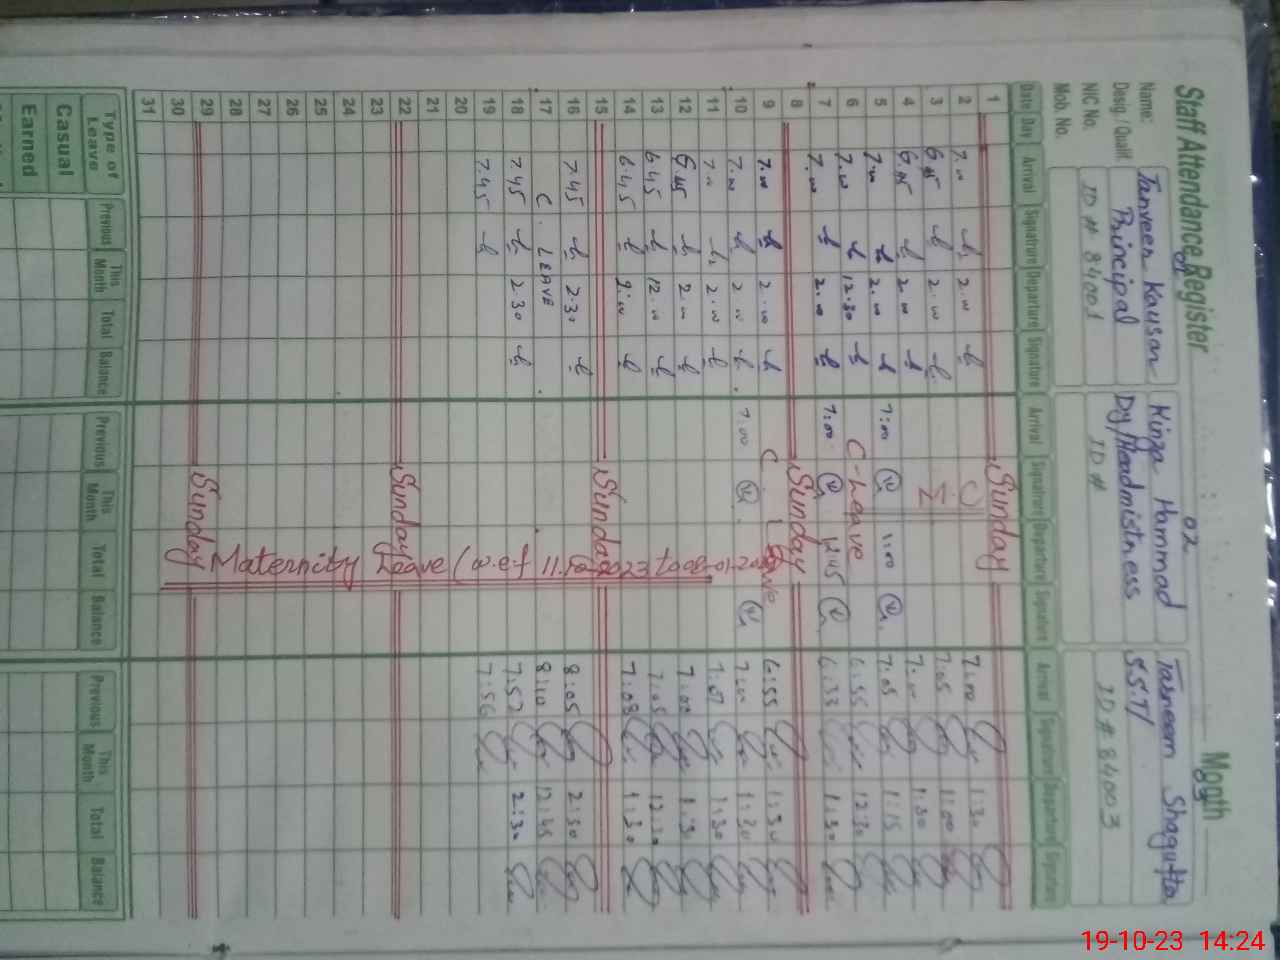 Staff Attendance Register
Month
01
02
03
Name:
Tanveer Kausar
Kinza Hammad
Tasneem Shagufta
Desig / Qualif.
Principal
Dy/Headmistress
S.S.T/
NIC No.
ID # 84001
ID #
ID # 84003
Mob No.
Date Day Arrival Signature Departure Signature Arrival Signature Departure Signature Arrival Signature Departure Signature
1 Sunday
2 7.00 2.00 7:00 1:30
3 6.45 2.00 7:05 1:00
4 6.45 2.00 1:30
5 7.00 2.00 7:00 1:00 7:05 1:15
6 7.00 12.30 C-Leave 6:55 12:30
7 7.00 2.00 7:00 12:45 6:33 1:30
8 Sunday
9 7.00 2.00 C Leave 6:55 1:30
10 7.00 2.00 7:00 7:00 1:30
11 7.00 2.00 7:07 1:30
12 6.45 2.00 7:00 1:30
13 6.45 12.00 7:05 12:30
14 6.45 2.00 7:08 1:30
15 Sunday
16 7.45 2.30 8:05 2:30
17 C. LEAVE 8:10 12:45
18 7.45 2.30 7:57 2:30
19 7.45 7:56
20
21
22 Sunday
23
24
25
26
27
28
29 Sunday
30
31
Maternity Leave (w.e.f 11.10.2023 to 08-01-2024
Type of Leave Previous This Month Total Balance Previous This Month Total Balance Previous This Month Total Balance
Casual
Earned
19-10-23 14:24